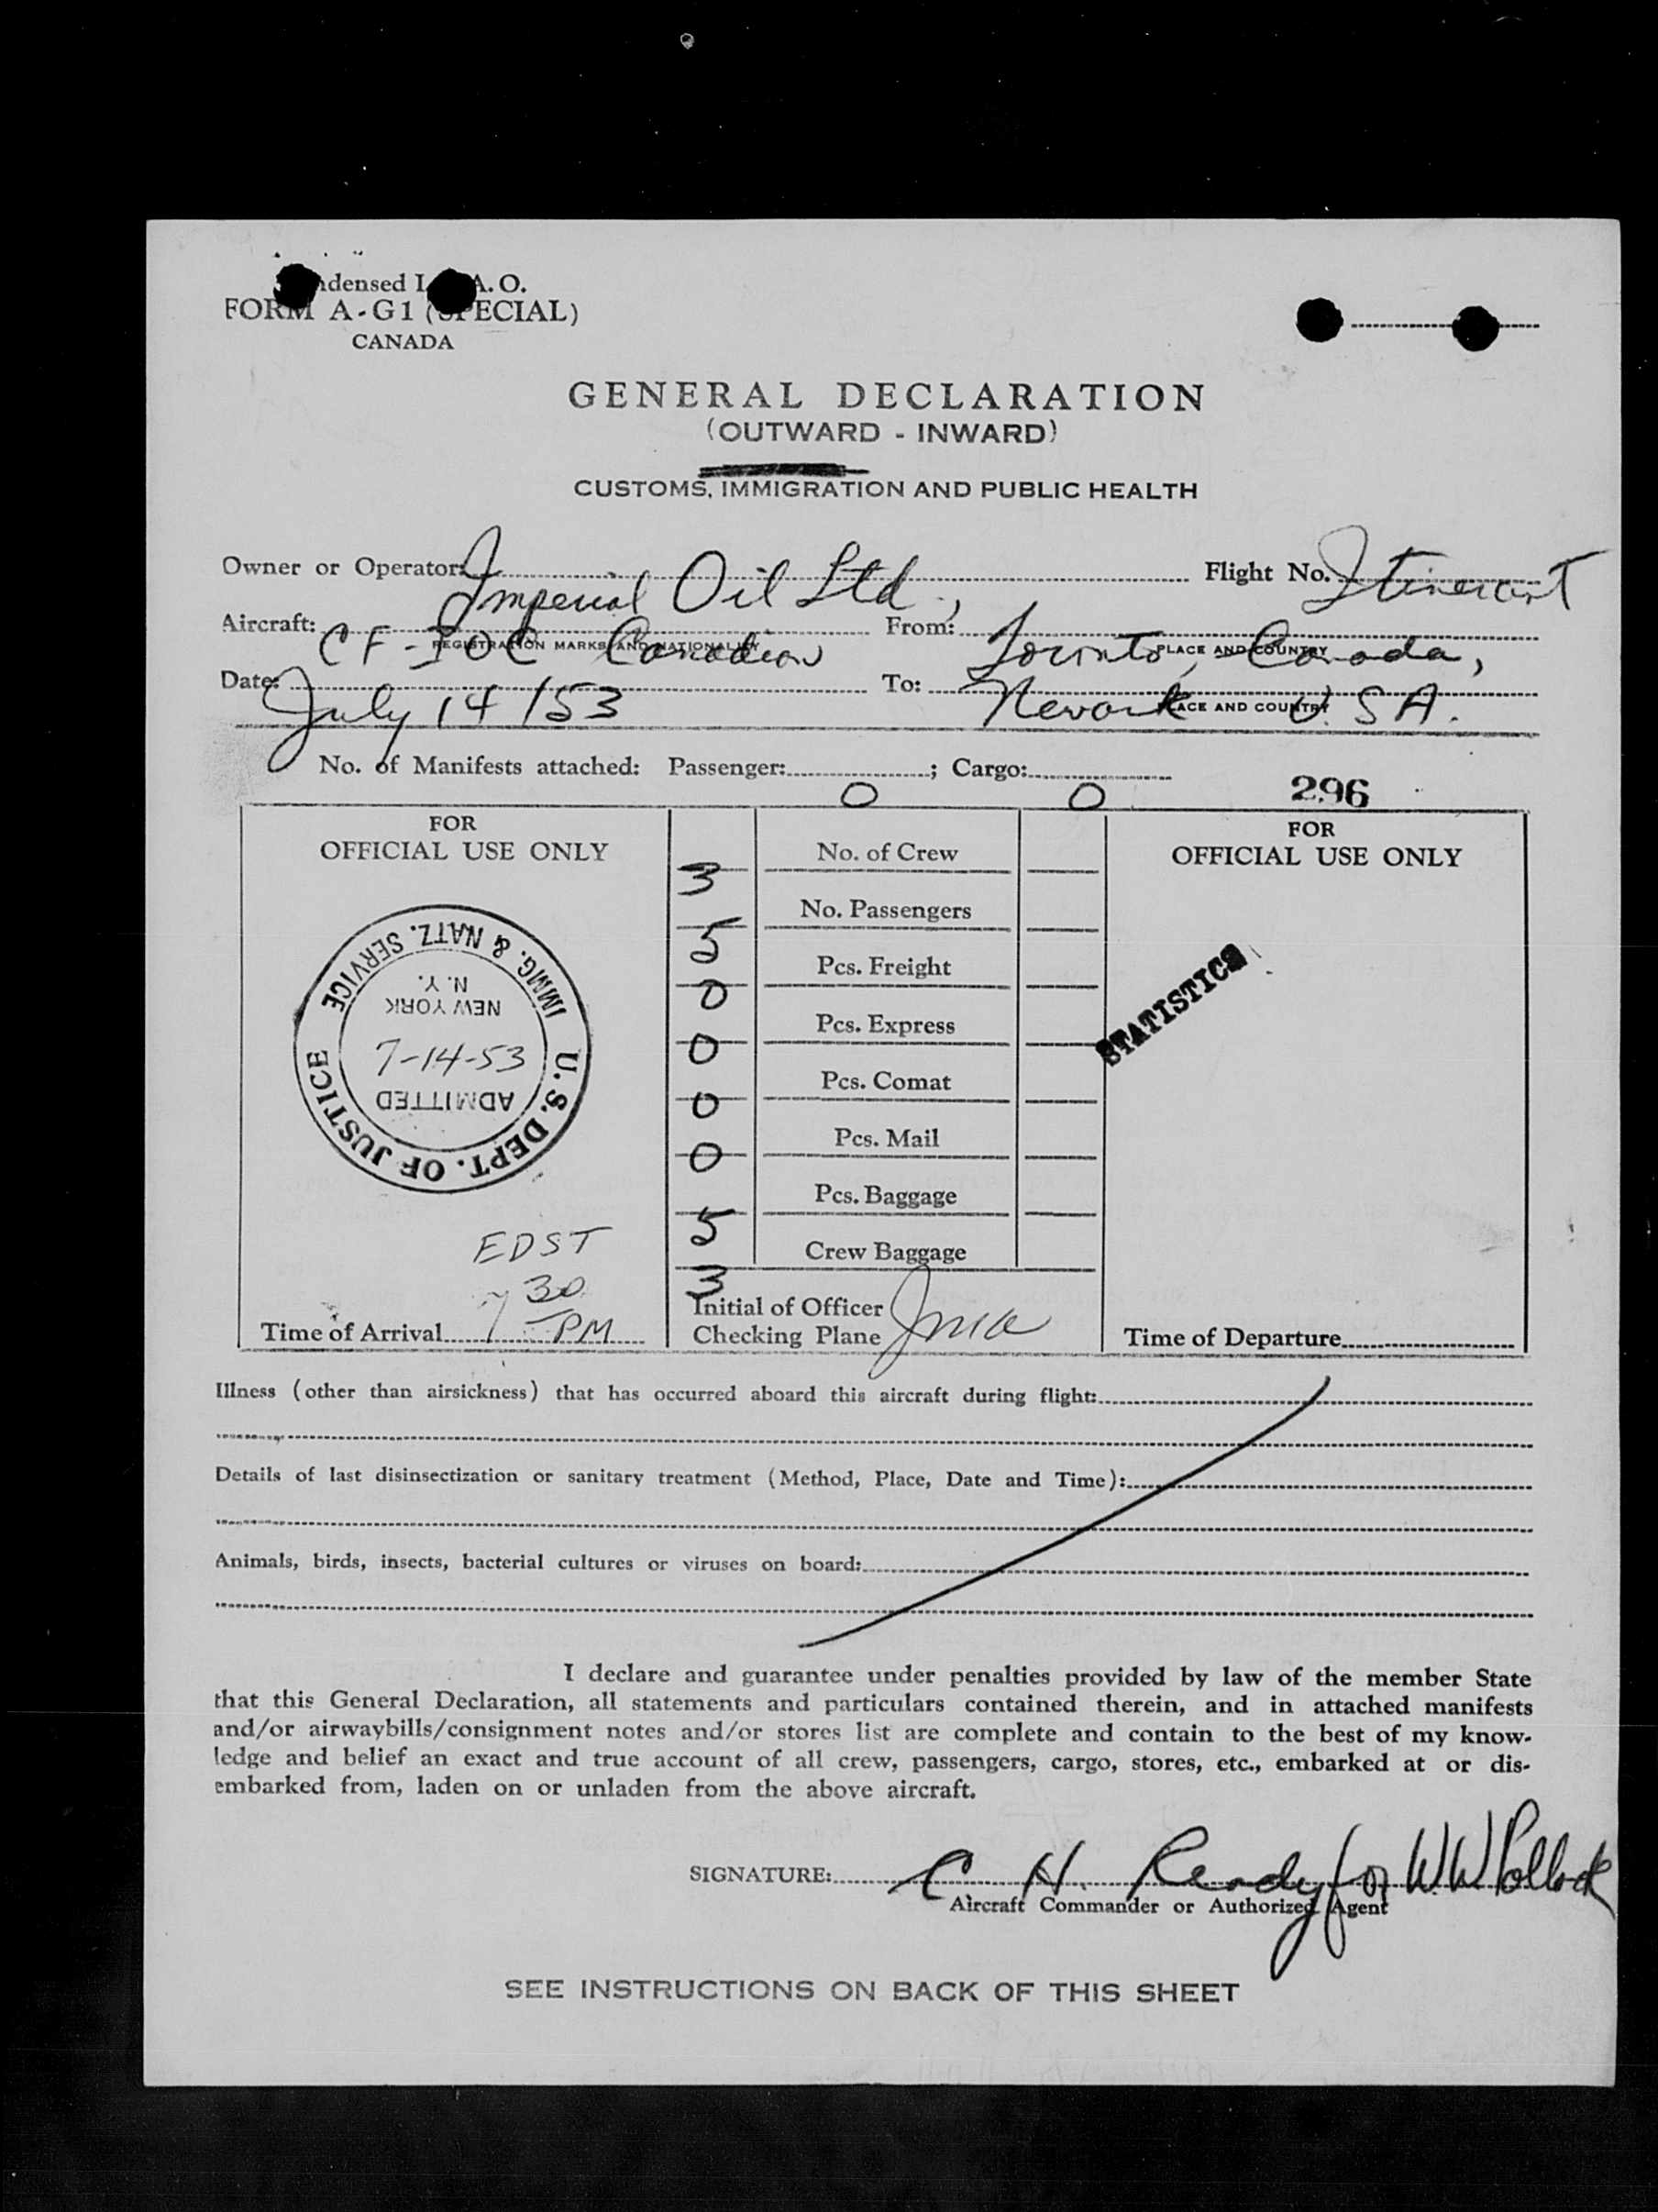 ndensed I. A. O.
FORM A-G1 (SPECIAL)
CANADA
GENERAL DECLARATION
(OUTWARD - INWARD)
CUSTOMS, IMMIGRATION AND PUBLIC HEALTH
Owner or Operator: Imperial Oil Ltd., Flight No. Itinerant
Aircraft: CF-IOC Canadian From: Toronto, Canada,
REGISTRATION MARKS AND NATIONALITY PLACE AND COUNTRY
Date: July 14/53 To: Newark U.S.A.
PLACE AND COUNTRY
No. of Manifests attached: Passenger: 0; Cargo: 0
296
FOR
OFFICIAL USE ONLY
U. S. DEPT. OF JUSTICE
IMMG. & NATZ. SERVICE
ADMITTED
7-14-53
NEW YORK
N.Y.
EDST
Time of Arrival 7 30 PM
No. of Crew 3
No. Passengers 5
Pcs. Freight 0
Pcs. Express 0
Pcs. Comat 0
Pcs. Mail 0
Pcs. Baggage 5
Crew Baggage 3
Initial of Officer
Checking Plane
FOR
OFFICIAL USE ONLY
STATISTICS
Time of Departure
Illness (other than airsickness) that has occurred aboard this aircraft during flight:
Details of last disinsectization or sanitary treatment (Method, Place, Date and Time):
Animals, birds, insects, bacterial cultures or viruses on board:
I declare and guarantee under penalties provided by law of the member State
that this General Declaration, all statements and particulars contained therein, and in attached manifests
and/or airwaybills/consignment notes and/or stores list are complete and contain to the best of my know-
ledge and belief an exact and true account of all crew, passengers, cargo, stores, etc., embarked at or dis-
embarked from, laden on or unladen from the above aircraft.
SIGNATURE: C H. Ready for W.W Pollock
Aircraft Commander or Authorized Agent
SEE INSTRUCTIONS ON BACK OF THIS SHEET